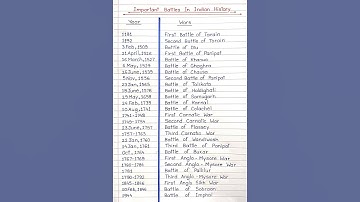 Important Battles In Indian History
Year Wars
1191 First Battle of Tarain
1192 Second Battle of Tarain
3 Feb, 1509 Battle of Diu
21 April, 1526 First Battle of Panipat
16 March, 1527 Battle of Khanwa
6 May, 1529 Battle of Ghaghra
26 June, 1539 Battle of Chausa
5 Nov, 1556 Second Battle of Panipat
23 Jan, 1565 Battle of Talikota
18 June, 1576 Battle of Haldighati
29 May, 1658 Battle of Samugarh
24 Feb, 1739 Battle of Karnal
10 Aug, 1741 Battle of Colachel
1746-1748 First Carnatic War
1749-1754 Second Carnatic War
23 June, 1757 Battle of Plassey
1757-1763 Third Carnatic War
22 Jan, 1760 Battle of Wandiwash
14 Jan, 1761 Third Battle of Panipat
Oct, 1764 Battle of Buxar
1767-1769 First Anglo-Mysore War
1780-1784 Second Anglo-Mysore War
1780 Battle of Pollilur
1790-1792 Third Anglo-Mysore War
1845-1846 First Anglo Sikh War
10 Feb, 1846 Battle of Sobraon
1944 Battle of Imphal